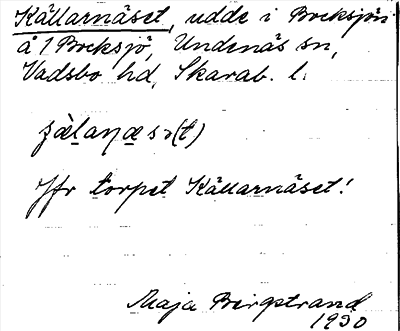 Källarnäset, udde i Brcksjön
å 1 Brcksjö, Undenäs sn,
Vadsbo hd, Skarab. l.
Jfr torpet Källarnäset!
Maja Bergstrand
1930